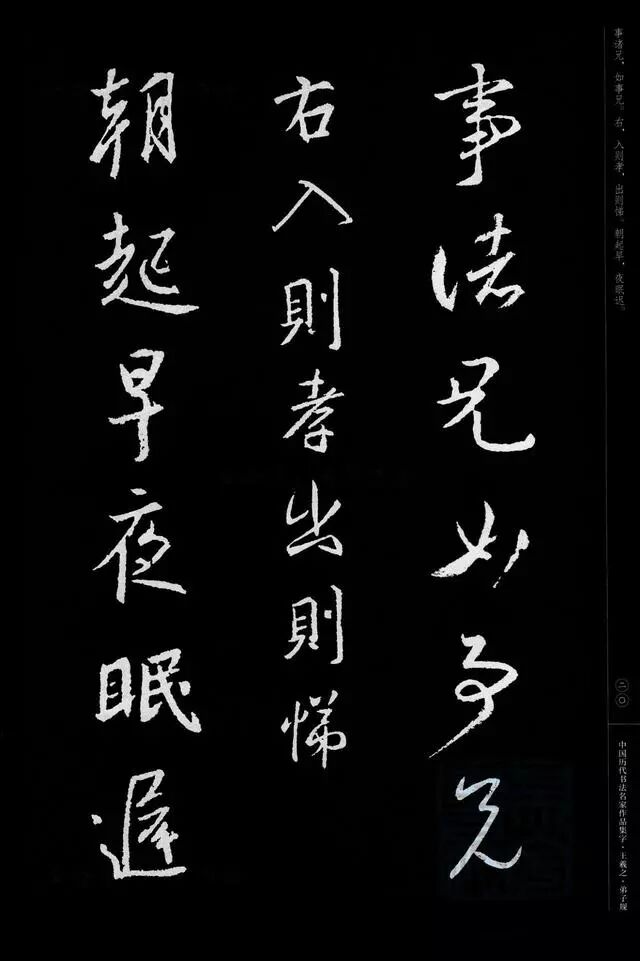 事诸兄，如事兄。右，入则孝，出则悌。朝起早，夜眠迟。
事諸兄如事兄
右入則孝出則悌
朝起早夜眠遲
二〇
中国历代书法名家作品集字·王羲之·弟子规